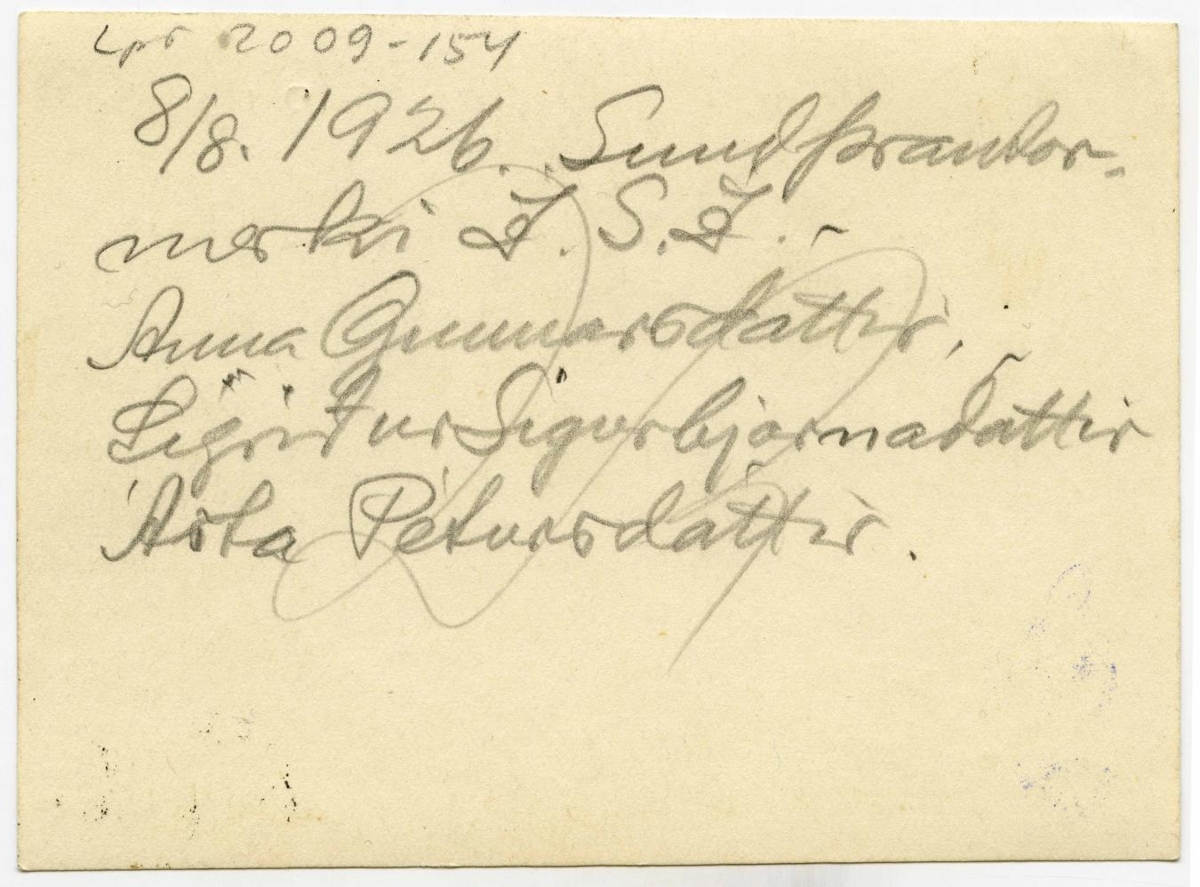 Lpr 2009-154
8/8. 1926. Sundþrautar-
merki Í. S. Í.
Anna Gunnarsdóttir,
Sigríður Sigurbjörnsdóttir
Ásta Pétursdóttir.